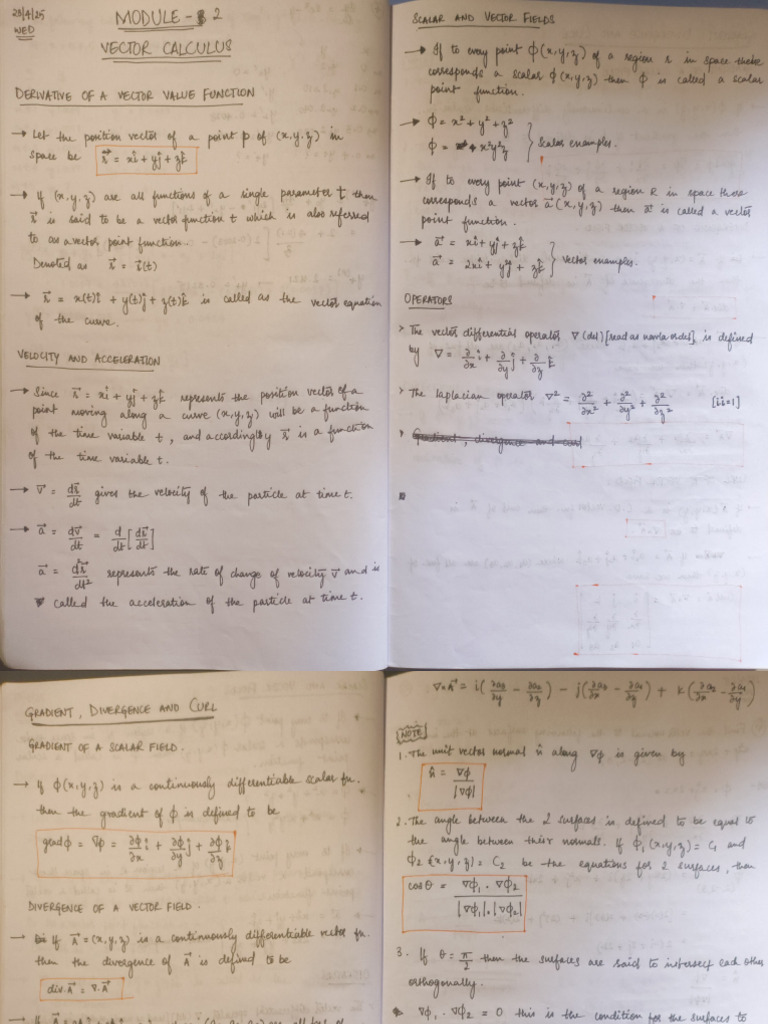 23/4/25
WED
MODULE - 2
VECTOR CALCULUS
DERIVATIVE OF A VECTOR VALUE FUNCTION
→ Let the position vector of a point P of (x,y,z) in
space be r⃗ = xî + yĵ + zk̂
→ If (x,y,z) are all functions of a single parameter t then
r⃗ is said to be a vector function t which is also referred
to as a vector point function.
Denoted as r⃗ = r⃗(t)
→ r⃗ = x(t)î + y(t)ĵ + z(t)k̂ is called as the vector equation
of the curve.
VELOCITY AND ACCELERATION
→ Since r⃗ = xî + yĵ + zk̂ represents the position vector of a
point moving along a curve (x,y,z) will be a function
of the time variable t, and accordingly r⃗ is a function
of the time variable t.
→ v⃗ = dr⃗/dt gives the velocity of the particle at time t.
→ a⃗ = dv⃗/dt = d/dt [dr⃗/dt]
a⃗ = d²r⃗/dt² represents the rate of change of velocity v⃗ and is
called the acceleration of the particle at time t.
SCALAR AND VECTOR FIELDS
→ If to every point ϕ(x,y,z) of a region r in space there
corresponds a scalar ϕ(x,y,z) then ϕ is called a scalar
point function.
→ ϕ = x² + y² + z²
ϕ = x²y²z } Scalar examples.
→ If to every point (x,y,z) of a region R in space there
corresponds a vector a⃗(x,y,z) then a⃗ is called a vector
point function.
→ a⃗ = xî + yĵ + zk̂
a⃗ = 2xî + y²ĵ + zk̂ } Vector examples.
OPERATORS
> The vector differential operator ∇ (del) [read as nabla or del] is defined
by ∇ = ∂/∂x î + ∂/∂y ĵ + ∂/∂z k̂
> The laplacian operator ∇² = ∂²/∂x² + ∂²/∂y² + ∂²/∂z² [i.i=1]
Gradient, divergence and curl
GRADIENT, DIVERGENCE AND CURL
GRADIENT OF A SCALAR FIELD.
→ If ϕ(x,y,z) is a continuously differentiable scalar fn.
then the gradient of ϕ is defined to be
grad ϕ = ∇ϕ = ∂ϕ/∂x î + ∂ϕ/∂y ĵ + ∂ϕ/∂z k̂
DIVERGENCE OF A VECTOR FIELD.
→ If A⃗ = (x,y,z) is a continuously differentiable vector fn.
then the divergence of A⃗ is defined to be
div.A⃗ = ∇.A⃗
∇×A⃗ = i(∂a₃/∂y - ∂a₂/∂z) - j(∂a₃/∂x - ∂a₁/∂z) + k(∂a₂/∂x - ∂a₁/∂y)
NOTE
1. The unit vector normal n̂ along ∇ϕ is given by
n̂ = ∇ϕ/|∇ϕ|
2. The angle between the 2 surfaces is defined to be equal to
the angle between their normals. If ϕ₁(x,y,z) = C₁ and
ϕ₂(x,y,z) = C₂ be the equations for 2 surfaces, then
cosθ = ∇ϕ₁ . ∇ϕ₂ / |∇ϕ₁| . |∇ϕ₂|
3. If θ = π/2 then the surfaces are said to intersect each other
orthogonally.
∇ϕ₁ . ∇ϕ₂ = 0 this is the condition for the surfaces to